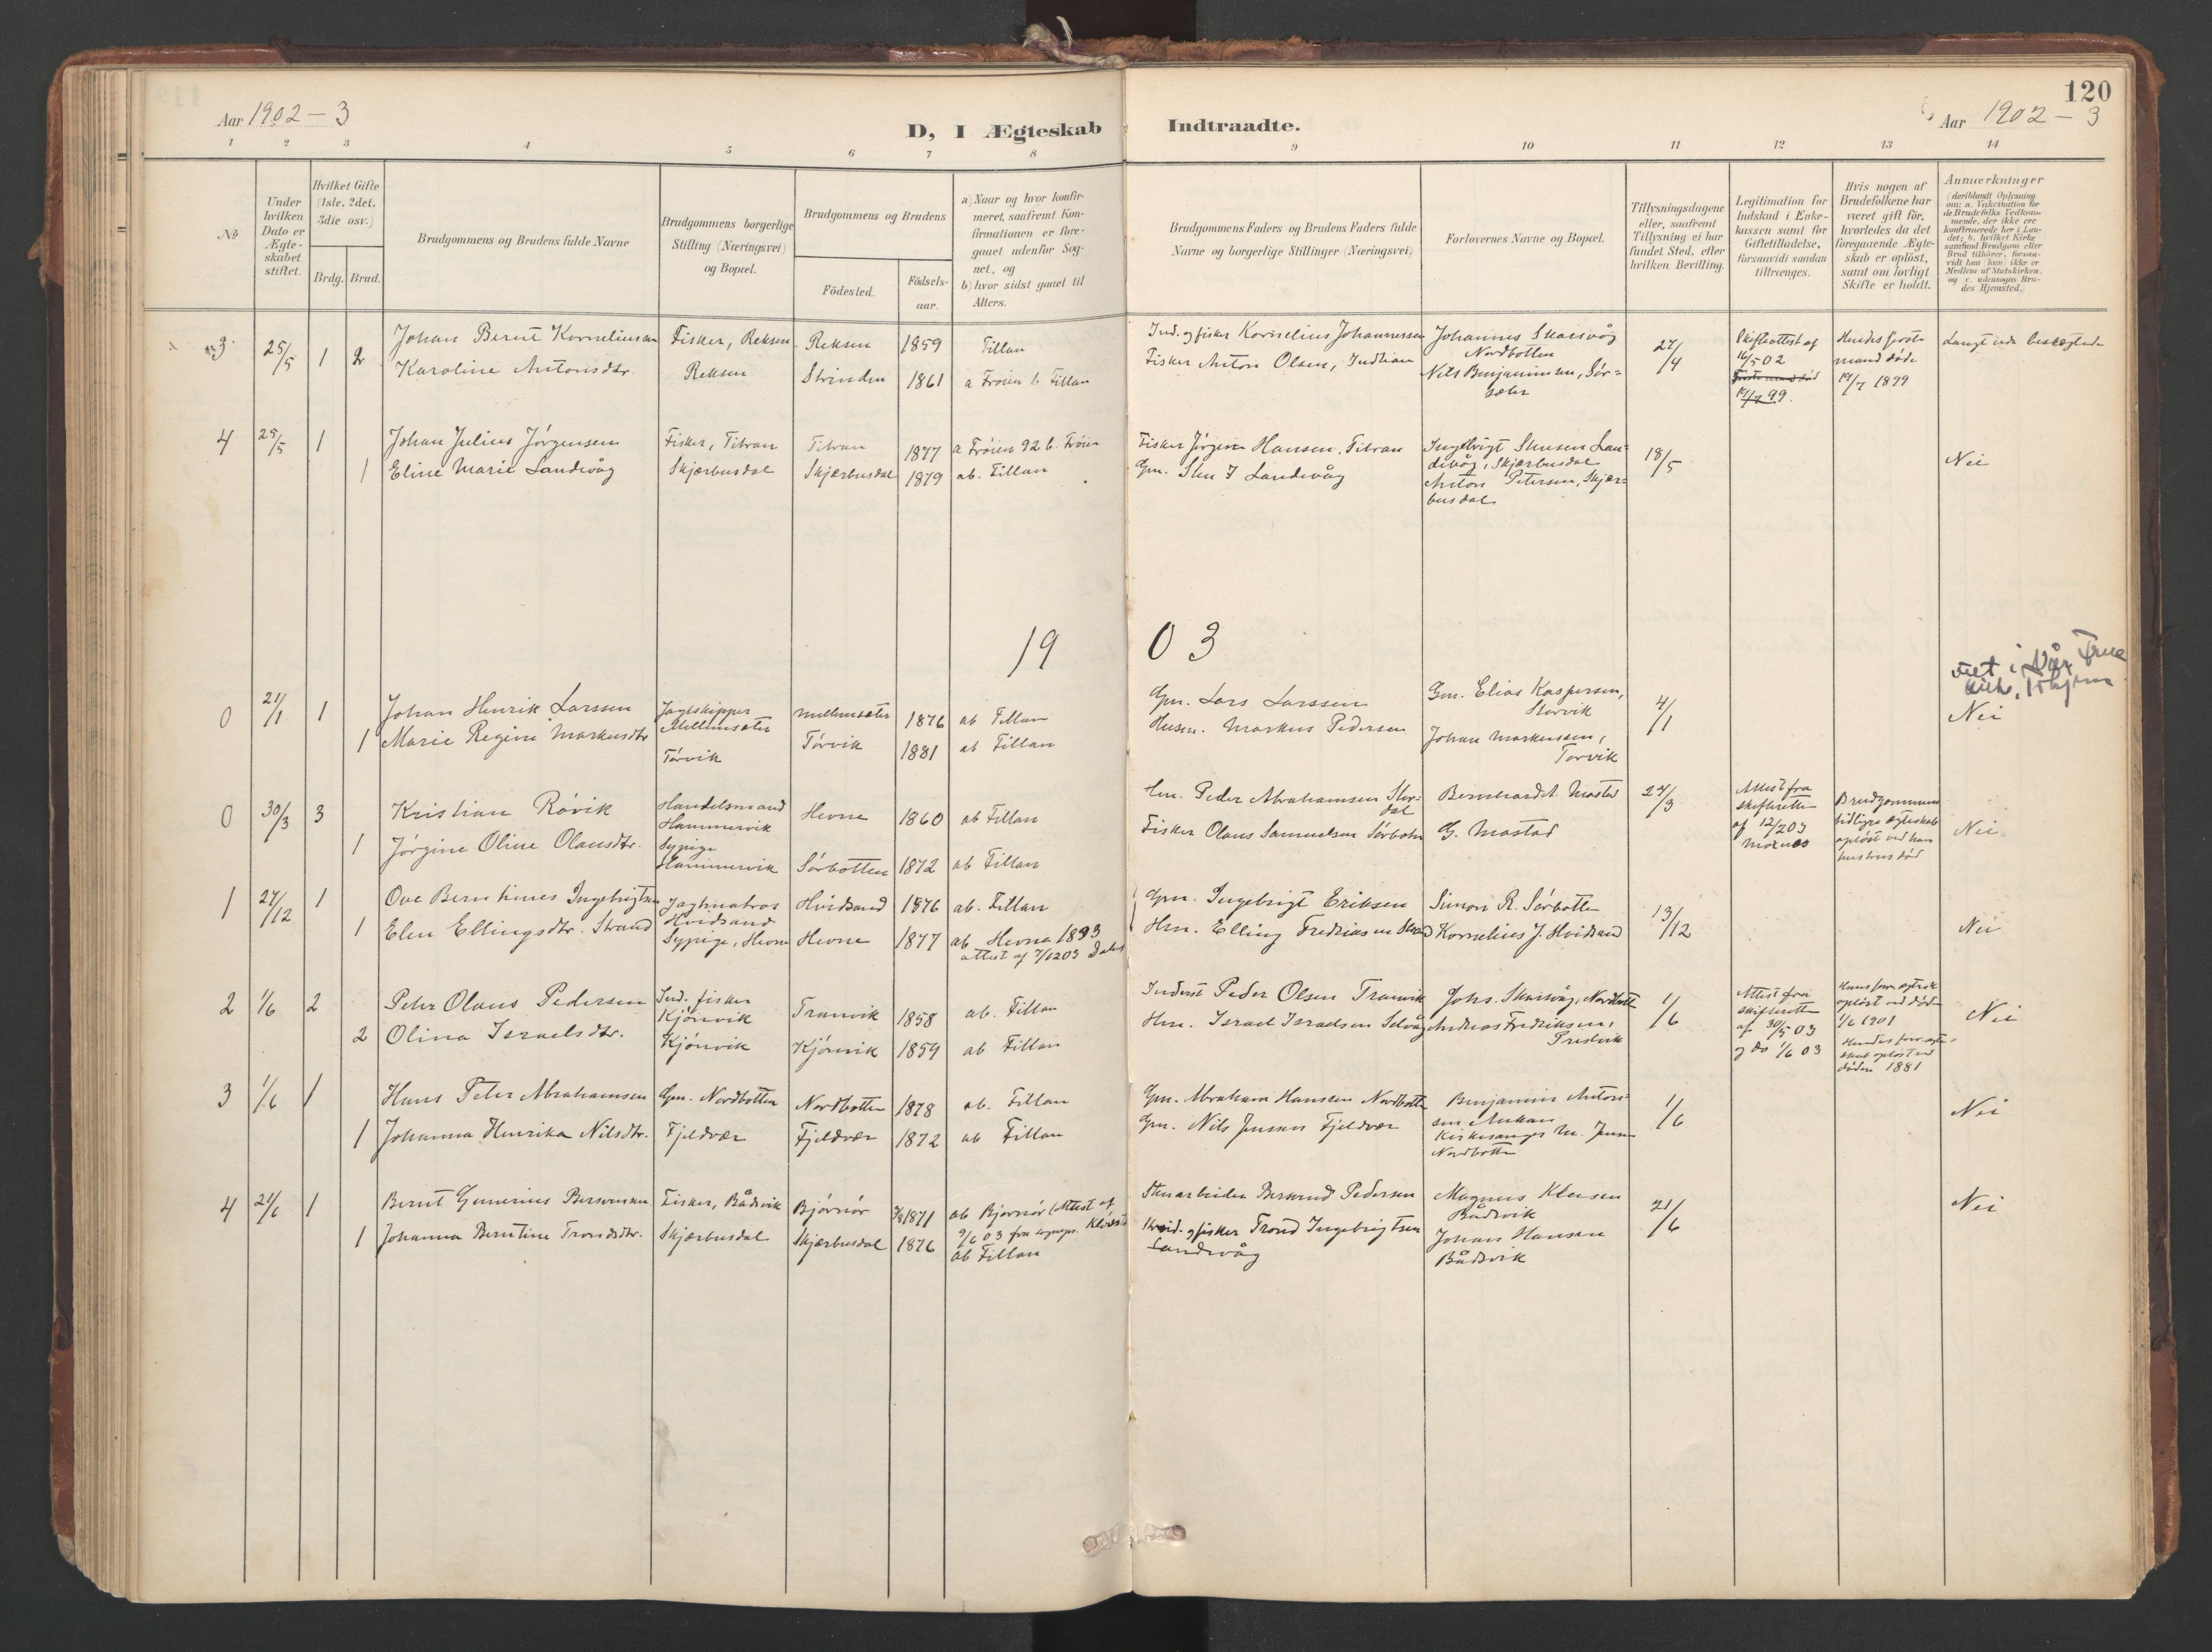 120
Aar 1902 – 3
D, I Ægteskab Indtraadte.
Aar 1902 – 3
1 2 3 4 5 6 7 8 9 10 11 12 13 14
No
Under hvilken Dato er Ægteskabet stiftet.
Hvilket Gifte (1ste, 2det, 3die osv.)
Brdg. Brud.
Brudgommens og Brudens fulde Navne
Brudgommens borgerlige Stilling (Næringsvei) og Bopæl.
Brudgommens og Brudens
Födested. Födselsaar.
a) Naar og hvor konfirmeret, saafremt Konfirmationen er foregaaet udenfor Sognet, og
b) hvor sidst gaaet til Alters.
Brudgommens Faders og Brudens Faders fulde Navne og borgerlige Stillinger (Næringsvei)
Forlovernes Navne og Bopæl.
Tillysningsdagene eller, saafremt Tillysning ei har fundet Sted, efter hvilken Bevilling.
Legitimation for Indskud i Enkekassen samt for Giftetilladelse, forsaavidt saadan tiltrænges.
Hvis nogen af Brudefolkene har været gift før, hvorledes da det foregaaende Ægteskab er opløst, samt om lovligt Skifte er holdt.
Anmærkninger
(deriblandt Oplysning om: a. Vakcination for de Brudefolks Vedkommende, der ikke ere konfirmerede her i Landet; b. hvilket Kirkesamfund Brudgom eller Brud tilhører, forsaavidt han (hun) ikke er Medlem af Statskirken, og c. udensogns Brudes Hjemsted.)
3 25/5 1 2
Johan Bernt Korneliussen Fisker, Reksen Reksen 1859 Fillan
Karoline Antonsdtr. Reksen Strinden 1861 a Frøien b. Fillan
Ind. og fisker Kornelius Johannessen
Fisker Anton Olsen,
Johannes Skarsvåg
Nordbotten
Nils Benjaminsen, Sör=
sæter
27/4
Skifteattest af
16/5 02
17/7 99.
Hendes første
mand døde
17/7 1899
Langt ude beslægtede
4 25/5 1
Johan Julius Jörgensen Fisker, Titran Titran 1877 a Fröien 92 b. Fröien
1 Eline Marie Landevåg Skjærbusdal Skjærbusdal 1879 ab. Fillan
Fisker Jörgen Hansen, Titran
Gm. Sten J Landevåg
Ingebrigt Stensen Lan=
devåg, Skjærbusdal
Anton Petersen, Skjær=
busdal
18/5
Nei
1903
0 21/1 1
Johan Henrik Larssen Jagtskipper Mellemsæter Mellemsæter 1876 ab Fillan
1 Marie Regine Markusdtr Törvik Törvik 1881 ab Fillan
Gm. Lars Larssen
Husm. Markus Pedersen
Gm. Elias Kaspersen,
Storvik
Johan Markussen,
Torvik
4/1
viet i Vår Frue
Kirke, Tr.hjem
Nei
0 30/3 3
Kristian Rövik Handelsmand Hammervik Hevne 1860 ab Fillan
1 Jörgine Oline Olausdtr. Sypige Hammervik Sörbotten 1872 ab Fillan
Gm. Peder Abrahamsen Stor=
dal
Fisker Olaus Samuelsen Sørbotn
Bernhard A. Mastad
G. Mastad
24/3
Attest fra
skifteretten
af 12/2 03
Moxnes
Brudgommens
tidligere ægteskab
opløst ved hans
hustrus död
Nei
1 27/12 1
Ove Berntinus Ingebrigtsen Jagtmatros Hvidsand Hvidsand 1876 ab. Fillan
1 Elen Ellingsdtr. Strand Sypige, Hevne Hevne 1877 ab Hevne 1893
attest af 7/12 03
Gm. Ingebrigt Eriksen
Gm. Elling Fredriksen Strand
Simon R. Sörbotten
Kornelius J. Hvidsand
13/12
Nei
2 1/6 2
Peter Olaus Pedersen Ind. fisker Kjönvik Tranvik 1858 ab. Fillan
2 Olina Israelsdtr. Kjönvik Kjönvik 1859 ab Fillan
Inderst Peder Olsen Tranvik
Gm. Israel Israelsen Selvåg
Johs. Skarsvåg, Nordbotten
Andreas Fredriksen,
Prestvik
1/6
Attest fra
skifteretten
af 30/5 03
og do 1/6 03
Hans forr. ægtesk.
opløst ved döden
1/6 1901
Hendes forr. ægte=
skab opløst ved
döden 1881
Nei
3 1/6 1
Hans Peter Abrahamsen Gm. Nordbotten Nordbotten 1878 ab. Fillan
1 Johanna Henrika Nilsdtr. Fjeldvær Fjeldvær 1872 ab Fillan
Gm. Abraham Hansen Nordbotten
Gm. Nils Jensen Fjeldvær
Benjamin Anton=
sen
Kirkesanger M. Jensen
Nordbotten
1/6
Nei
4 21/6 1
Bernt Gunerius Fisker, Bådsvik Bjørnör 1871 ab Bjørnör (Attest af
9/6 03 fra sognepr.
1 Johanna Berntine Trondsdtr. Skjærbusdal Skjærbusdal 1876 ab Fillan
Stenarbeider Pedersen
og fisker Trond Ingebrigtsen
Landevåg
Magnus Klausen
Bådsvik
Johan Hansen
Bådsvik
21/6
Nei